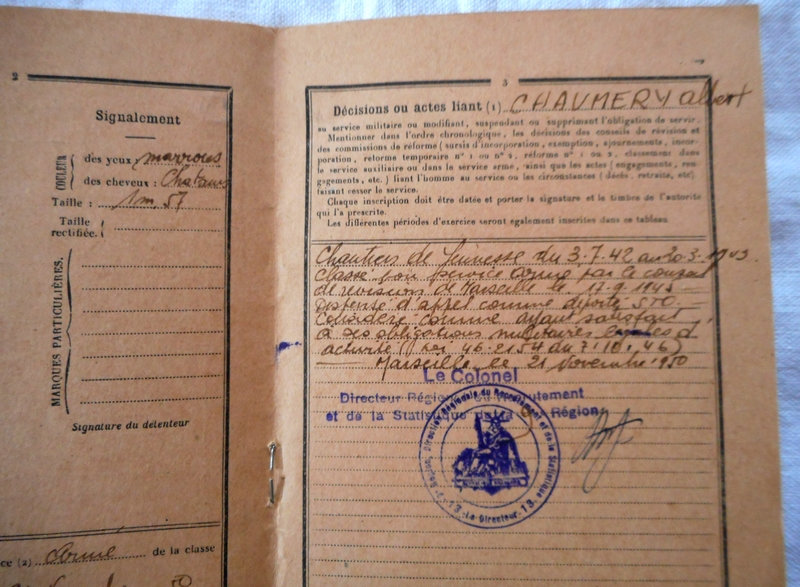 2
Signalement
COULEUR
des yeux : marrons
des cheveux : Chatains
Taille : 1m 57
Taille
rectifiée.
MARQUES PARTICULIÈRES.
Signature du détenteur
ce (2) armé de la classe
3
Décisions ou actes liant (1) CHAUMERY albert
au service militaire ou modifiant, suspendant ou supprimant l'obligation de servir.
Mentionner dans l'ordre chronologique, les décisions des conseils de révision et
des commissions de réforme (sursis d'incorporation, exemption, ajournements, incor-
poration, reforme temporaire n° 1 ou n° 2, réforme n° 1 ou 2, classement dans
le service auxiliaire ou dans le service arme, ainsi que les actes (engagements, ren-
gagements, etc.) liant l'homme au service ou les circonstances (décès, retraite, etc)
faisant cesser le service.
Chaque inscription doit être datée et porter la signature et le timbre de l'autorité
qui l'a prescrite.
Les différentes périodes d'exercice seront également inscrites dans ce tableau.
Chantiers de Jeunesse du 3.7.42 au 20.3.1943.
Classé bon service armé par le conseil
de revision de Marseille le 17.9.1945 —
Dispensé d'appel comme déporté STO. —
Considéré comme ayant satisfait
à ses obligations militaires légales d'
activité (loi 46.2154 du 7.10.46)
— Marseille, le 21 Novembre 1950
Le Colonel
Directeur Régional du Recrutement
et de la Statistique de la 9e Région
Direction Régionale du Recrutement et de la Statistique
Le Directeur